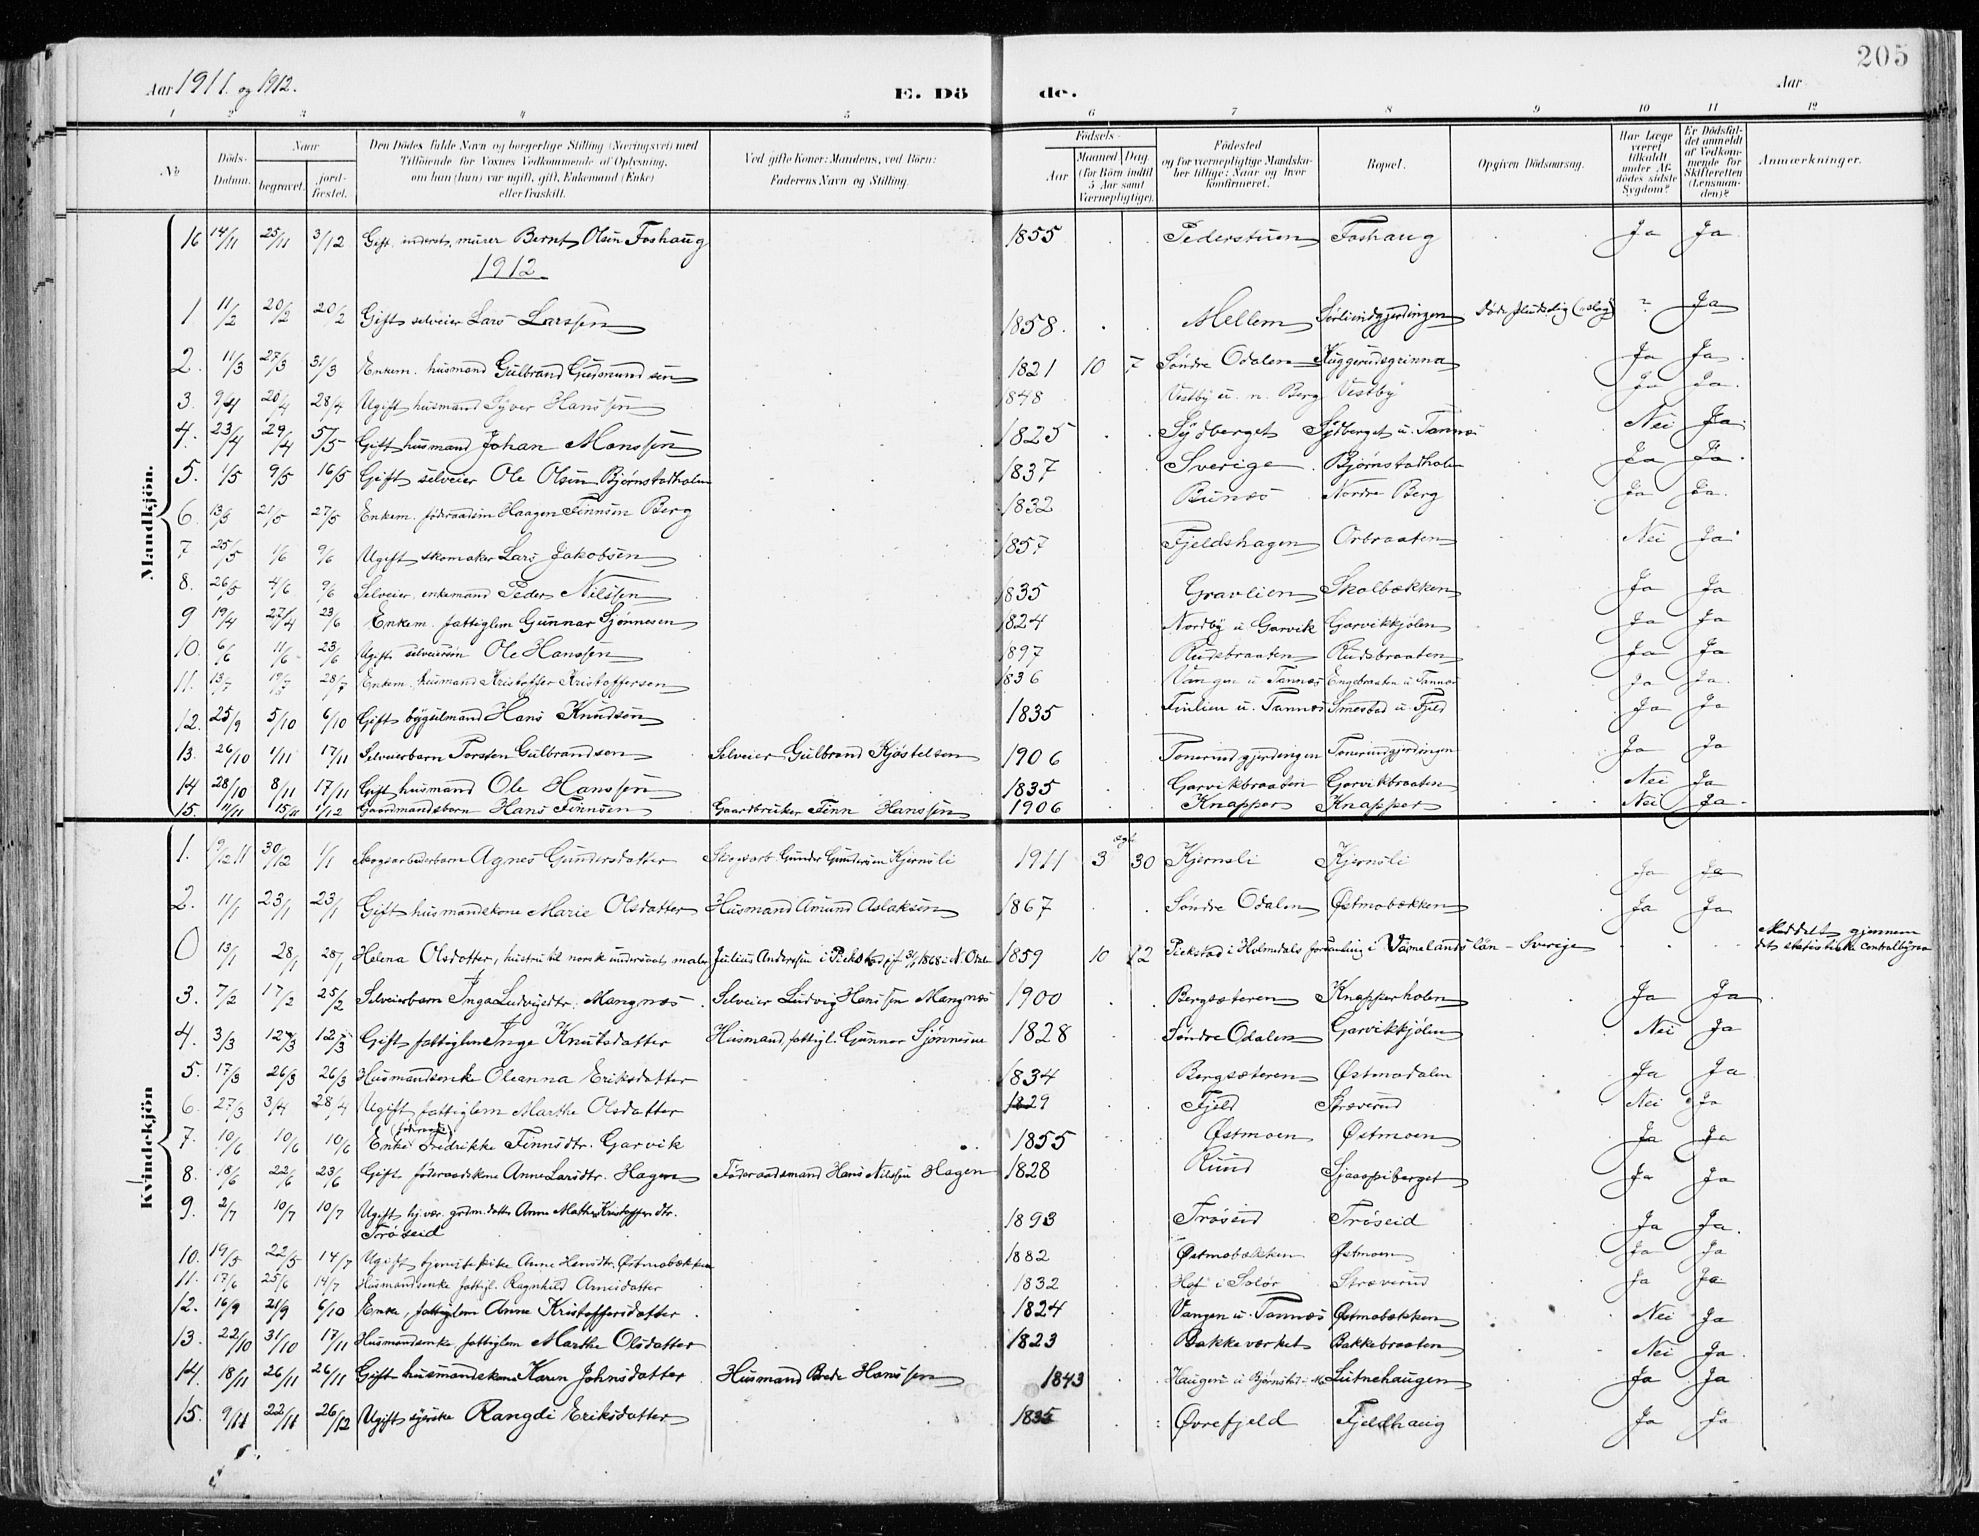 205
Aar 1911. og 1912. E. Dö de. Aar
1 2 3 4 5 6 7 8 9 10 11 12
No
Döds-Datum.
Naar begravet. jord-fæstet.
Den Dödes fulde Navn og borgerlige Stilling (Næringsvei) med Tilföiende for Voxnes Vedkommende af Oplysning, om han (hun) var ugift, gift, Enkemand (Enke) eller fraskilt.
Ved gifte Koner: Mandens, ved Börn: Faderens Navn og Stilling.
Födsels-
Aar Maaned Dag (for Börn indtil 5 Aar samt Værnepligtige).
Födested og for værnepligtige Mandskaber tillige: Naar og hvor konfirmeret.
Bopæl.
Opgiven Dödsaarsag.
Har Læge været tilkaldt under Afdödes sidste Sygdom?
Er Dödsfaldet anmeldt af Vedkommende for Skifteretten (Lensmanden)?
Anmærkninger.
Mandkjön.
16 14/11 25/11 3/12 Gift inderst, murer Bernt Olsen Foshaug 1855 Pederstuen Foshaug Ja Ja
1912
1 11/2 20/2 20/2 Gift selveier Lars Larssen 1858 Mellem ? Ja
2. 11/3 27/3 31/3 Enkem. husmand Gulbrand Gudmundsen 1821 10 7 Søndre Odalen Kuggerudsgrinna Ja Ja
3. 9/4 20/4 28/4 Ugift husmand Syver Hanssen 1848 Vestby u. n. Berg Vestby Ja Ja
4. 23/4 29/4 5/5 Gift husmand Johan Monssen 1825 Sydberget Sydberget u. Tannæs Nei Ja
5. 1/5 9/5 16/5 Gift selveier Ole Olsen Bjørnstadholm 1837 Sverige Bjørnstadholm Ja Ja
6. 13/5 21/5 27/5 Enkem. føderaadsm Haagen Finnsen Berg 1832 Bunæs Nordre Berg Ja Ja
7 25/5 1/6 9/6 Ugift skomaker Lars Jakobsen 1857 Fjeldshagen Orbraaten Nei Ja
8. 26/5 4/6 9/6 Selveier, enkemand Peder Nilssen 1835 Gravlien Skolbækken Ja Ja
9 19/4 27/4 23/6 Enkem. fattiglem Gunnar Sjønnesen 1824 Nordby u Garvik Garvikkjølen Ja Ja
10. 6/6 11/6 23/6 Ugift selveiersøn Ole Hanssen 1897 Rudsbraaten Rudsbraaten Ja Ja
11. 13/7 19/7 28/7 Enkem. husmand Kristoffer Kristoffersen 1836 Vangen u Tannæs Engebraaten u Tannæs Ja Ja
12. 25/9 5/10 6/10 Gift bygselmand Hans Knudsen 1835 Finlien u. Tannæs Smestad u. Fjeld Ja Ja
13. 26/10 1/11 17/11 Selveierbarn Torsten Gulbrandsen Selveier Gulbrand Kjøstelsen 1906 Tonerudgjerdingen Tonerudgjerdingen Ja Ja
14 28/10 8/11 17/11 Gift husmand Ole Hanssen 1835 Garvikbraaten Garvikbraaten Nei Ja
15. 11/11 15/11 1/12 Gaardmandsbarn Hans Finnsen Gaardbruker Finn Hanssen 1906 Knapper Knapper Nei Ja
Kvindekjön
1. 9/12 11 30/12 1/1 Skogsarbeiderbarn Agnes Gundersdatter Skogsarb Gunder Gundersen Kjernsli 1911 3 30 Kjernsli Kjernsli Ja Ja
2. 11/1 23/1 23/1 Gift husmandskone Marie Olsdatter Husmand Amund Aslaksen 1867 Søndre Odalen Østmobækken Ja Ja
0 13/1 28/1 28/1 Helena Olsdatter, hustru til norsk undersaat, maler Julius Anderssen i Pickstad, 1868 i N. Odalen 1859 10 12 Pickstad i Holmedals forsamling i Värmelands län - Sverige Meddelt gjennem det statistiske Centralbyraa
3. 7/2 17/2 25/2 Selveierbarn Inga Ludvigsdtr. Mangnæs Selveier Ludvig Hanssen Mangnæs 1900 Bergsæteren Knapperholen Ja Ja
4. 3/3 12/3 12/3 Gift fattiglem Inge Knutsdatter Husmand, fattigl. Gunnar Sjønnesen 1828 Søndre Odalen Garvikkjølen Nei Ja
5. 17/3 26/3 26/3 Husmandsenke Oleanna Eriksdatter 1834 Bergsæteren Østmodalen Ja Ja
6. 27/3 3/4 28/4 Ugift fattiglem Marthe Olsdatter 1829 Fjeld Stræverud Nei Ja
7. 10/6 10/6 10/6 Enke Fredrikke Finnsdtr. Garvik 1855 Østmoen Østmoen Ja Ja
8. 18/6 22/6 23/6 Gift føderaadskone Anne Larsdtr. Hagen Føderaadsmand Hans Nilssen Hagen 1828 Rund Sjaapiberget Ja Ja
9. 2/7 10/7 10/7 Ugift hjvær. gdm. datter Anne Mathea Kristoffersdtr. Trøseid 1893 Trøseid Trøseid Ja Ja
10. 19/5 22/5 14/7 Ugift tjenestepike Anne Hansdtr. Østmobækken 1882 Østmobækken Østmoen Ja Ja
11. 17/6 25/6 14/7 Husmandsenke fattigl. Ragnhild Arnesdatter 1832 Hof i Solør Stræverud Ja Ja
12. 16/9 21/9 6/10 Enke, fattiglem Anne Kristoffersdatter 1824 Vangen u. Tannæs Østmobækken Nei Ja
13. 22/10 31/10 17/11 Husmandsenke fattiglem Marthe Olsdatter 1823 Bakkeværket Bakkebraaten Nei Ja
14. 18/11 26/11 26/11 Gift husmandskone Karen Johnsdatter Husmand Brede Hanssen 1843 Haugen u Bjørnstad Lutnehaugen Ja Ja
15. 9/11 22/11 26/12 Ugift syerske Rangdi Eriksdatter 1835 Øvrefjeld Fjeldhaug Ja Ja